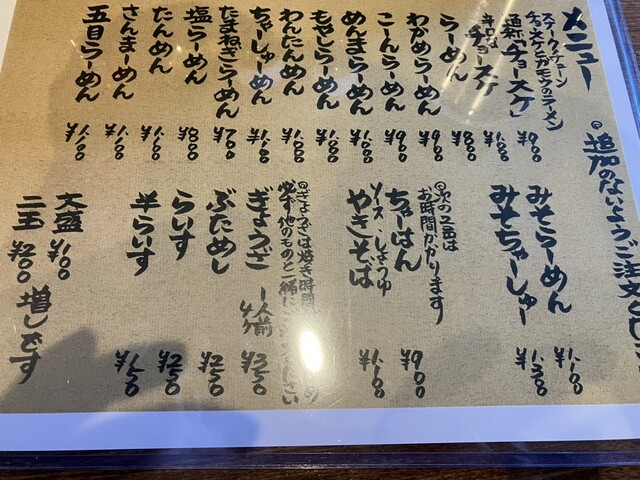 メニュー
㊟追加のないようご注文くだ
チョースケとガモウのラーメン
通称「チョースケ」 ¥900
辛口は「チョースケ」 ¥1,000
らーめん ¥800
わかめらーめん ¥900
こーんらーめん ¥900
めんまらーめん ¥1,000
もやしらーめん ¥1,000
わんたんめん ¥1,000
ちゃーしゅーめん ¥1,100
たまねぎらーめん ¥900
塩らーめん ¥800
たんめん ¥1,100
さんまーめん ¥1,100
五目らーめん ¥1,100
みそらーめん ¥1,100
みそちゃーしゅー ¥1,300
◎次の2品は
お時間がかかります
ちゃーはん ¥900
ソース・しょうゆ
やきそば ¥1,100
◎ぎょうざは焼き時間
必ず他のものと一緒に
ぎょうざ 一人前 ¥350
ぶためし ¥250
らいす ¥250
半らいす ¥150
大盛 ¥100
二玉 ¥200 増しです